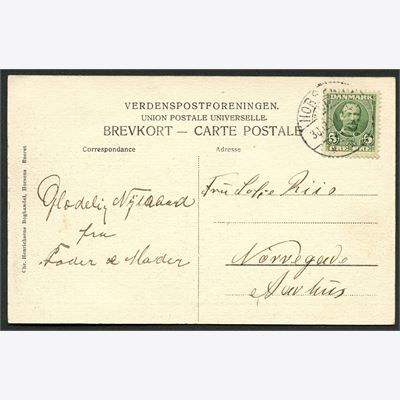 VERDENSPOSTFORENINGEN.
UNION POSTALE UNIVERSELLE.
BREVKORT — CARTE POSTALE
Correspondance
Adresse
DANMARK
5 5
HORS
Glædelig Nytaar
fra
Fader & Moder
Fru Riis
Nørregade
Aarhus
Chr. Henrichsens Boghandel, Horsens